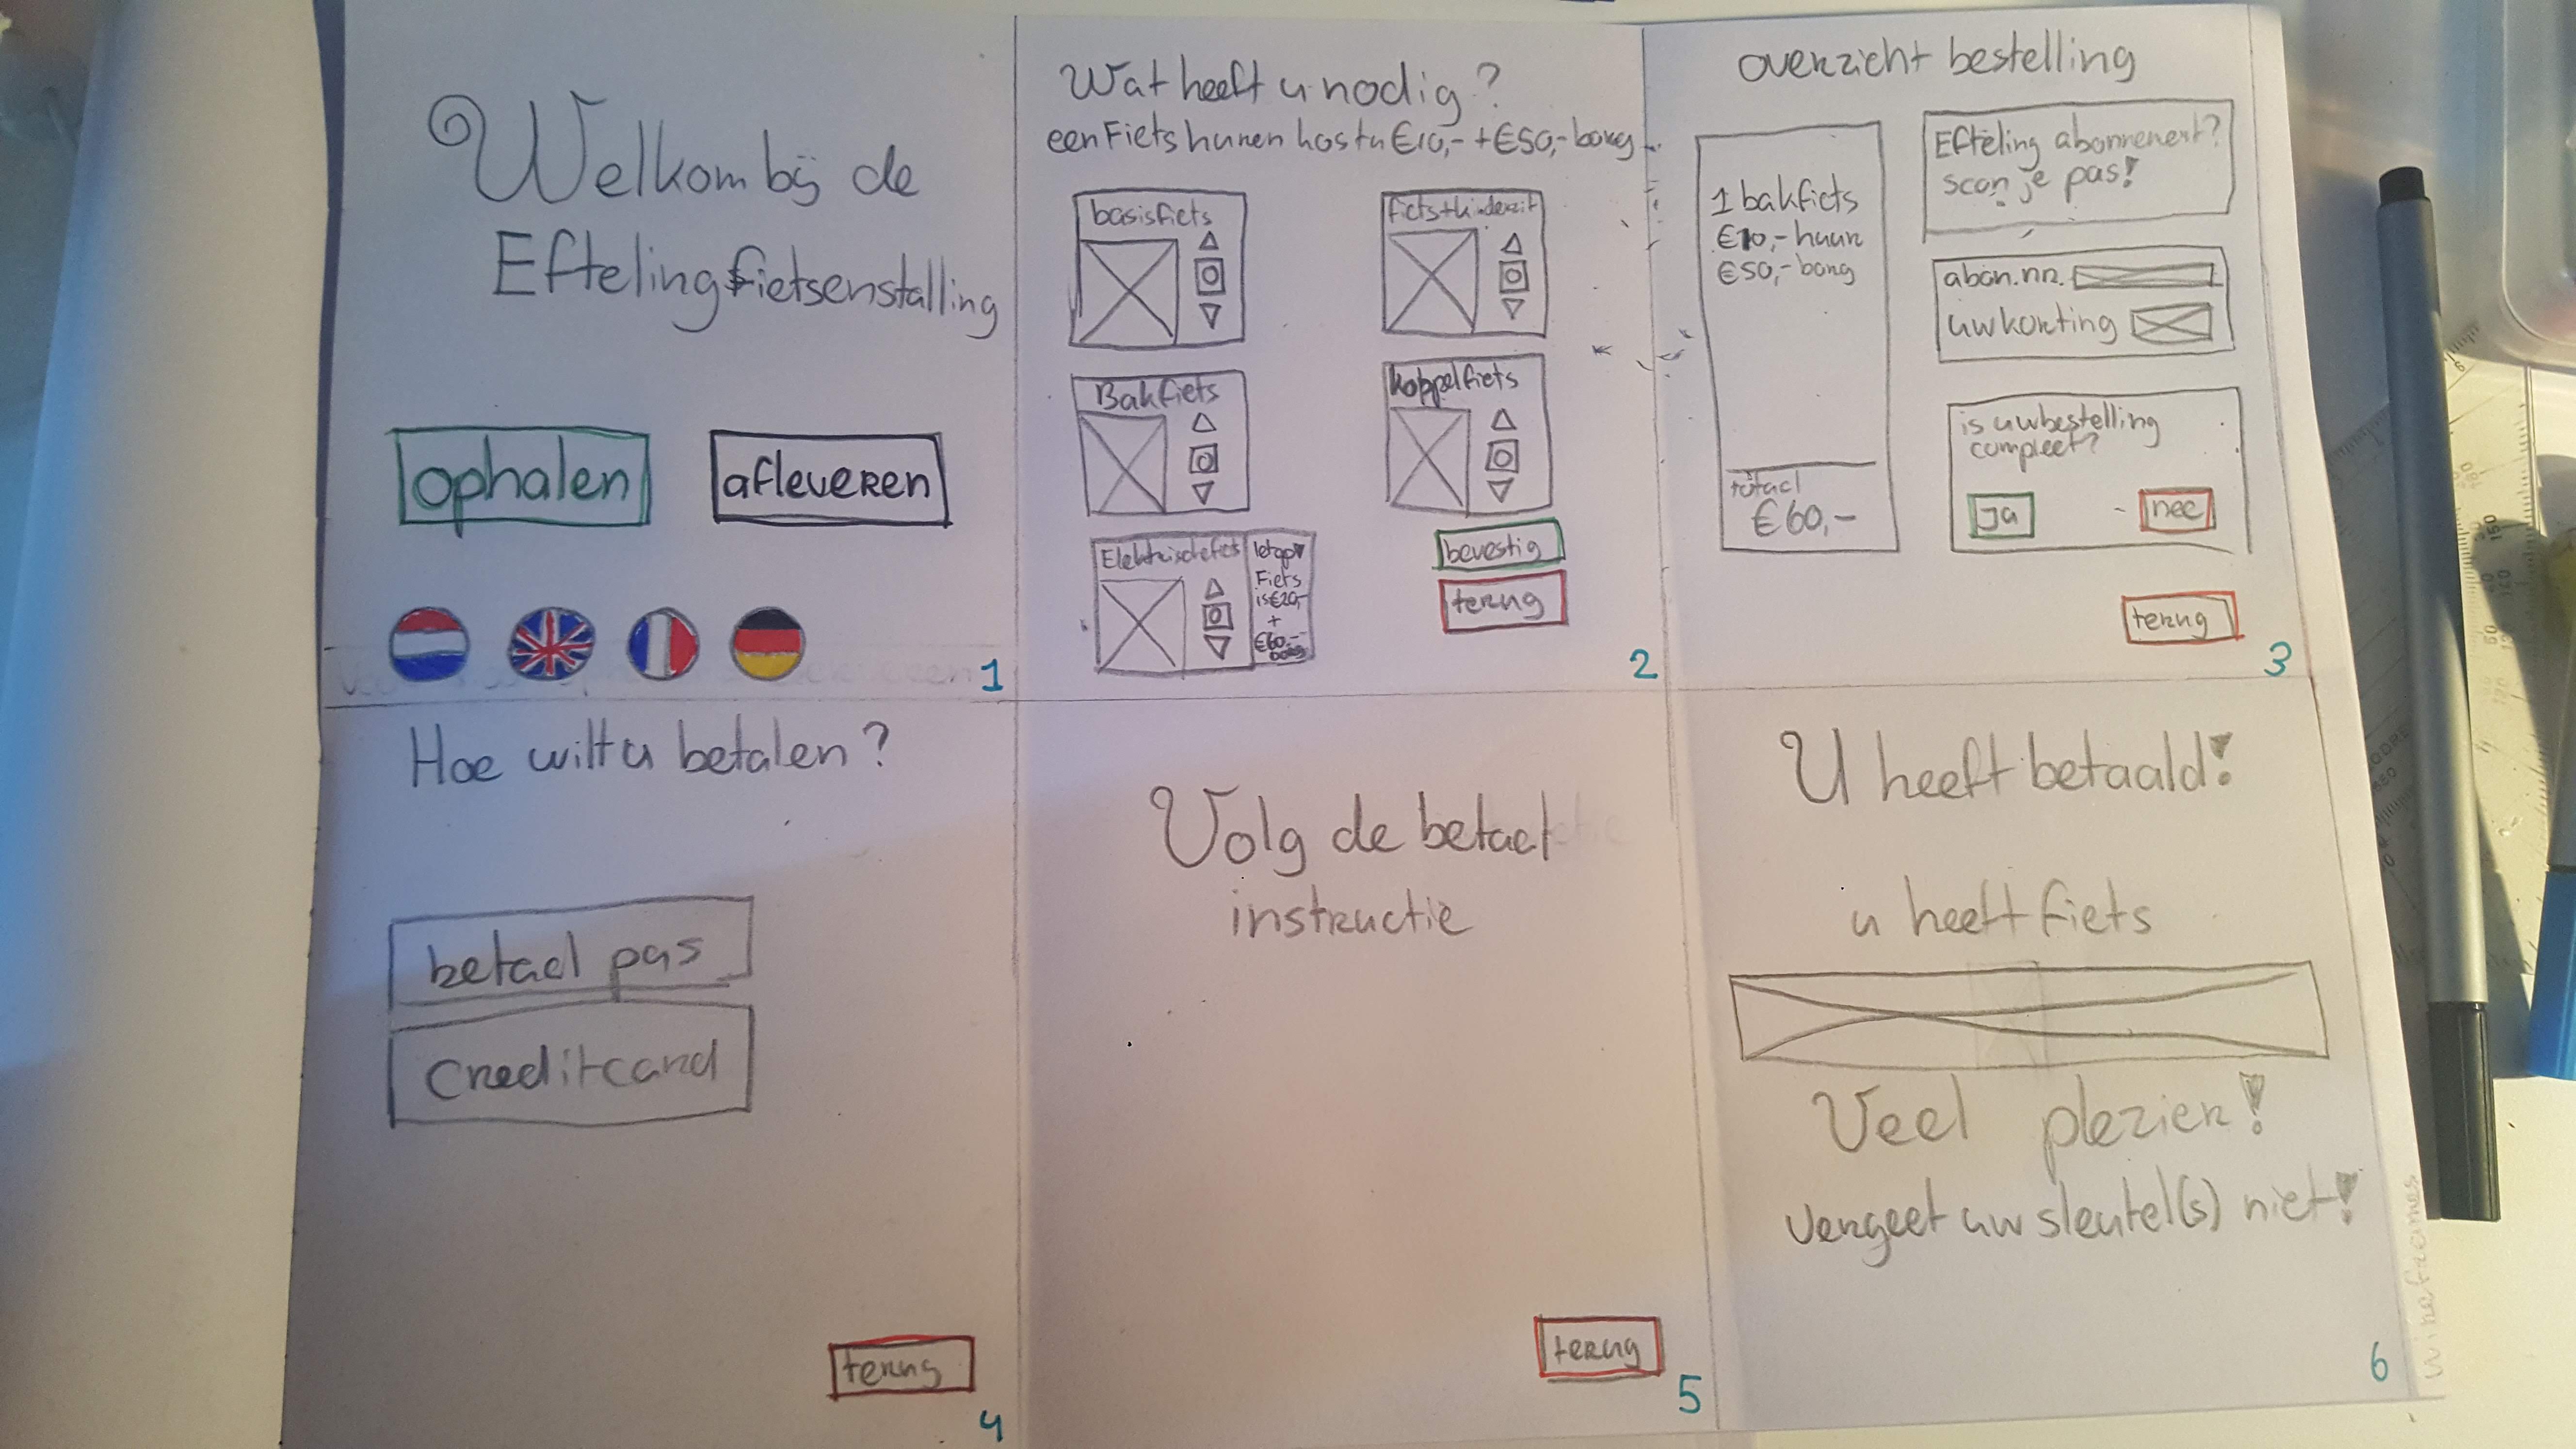 Welkom bij de
Efteling fietsenstalling
ophalen
afleveren
1
Wat heeft u nodig?
een Fiets huren kost u €10,- + €50,- borg
basisfiets
0
fiets+kinderzit
0
Bakfiets
0
koppelfiets
0
Elektrischefiets
0
let op!
Fiets
is €20,-
+
€60,-
borg
bevestig
terug
2
overzicht bestelling
1 bakfiets
€10,- huur
€50,- borg
totaal
€60,-
Efteling abonnement?
scan je pas!
abon.nr.
uw korting
is uw bestelling
compleet?
ja
nee
terug
3
Hoe wilt u betalen?
betaal pas
creditcard
terug
4
Volg de betaal
instructie
terug
5
U heeft betaald!
u heeft fiets
Veel plezier!
vergeet uw sleutel(s) niet!
6
wireframes